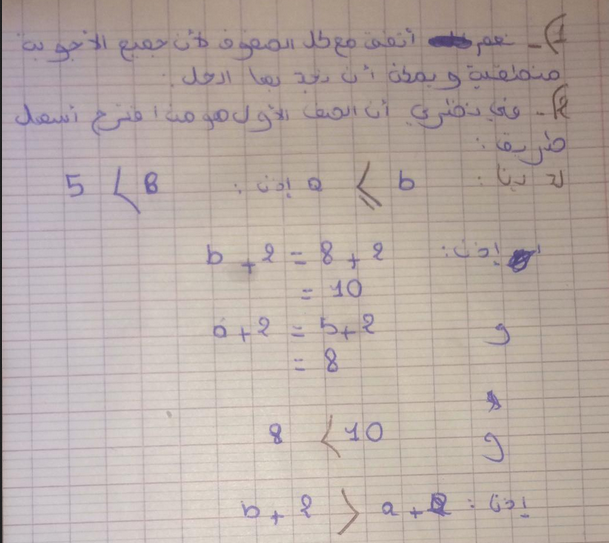 1)- نعم أتفق مع كل الصفوف لأن جميع الأجوبة
منطقية و يمكن أن نجد بها الحل.
2)- وفي نظري أن الصف الأول هو من اقترح أسهل
طريقة:
لدينا: a ⩽ b إذن: 5 < 8
إذن: b + 2 = 8 + 2
= 10
و a + 2 = 5 + 2
= 8
و 8 < 10
إذن: b + 2 > a + 2